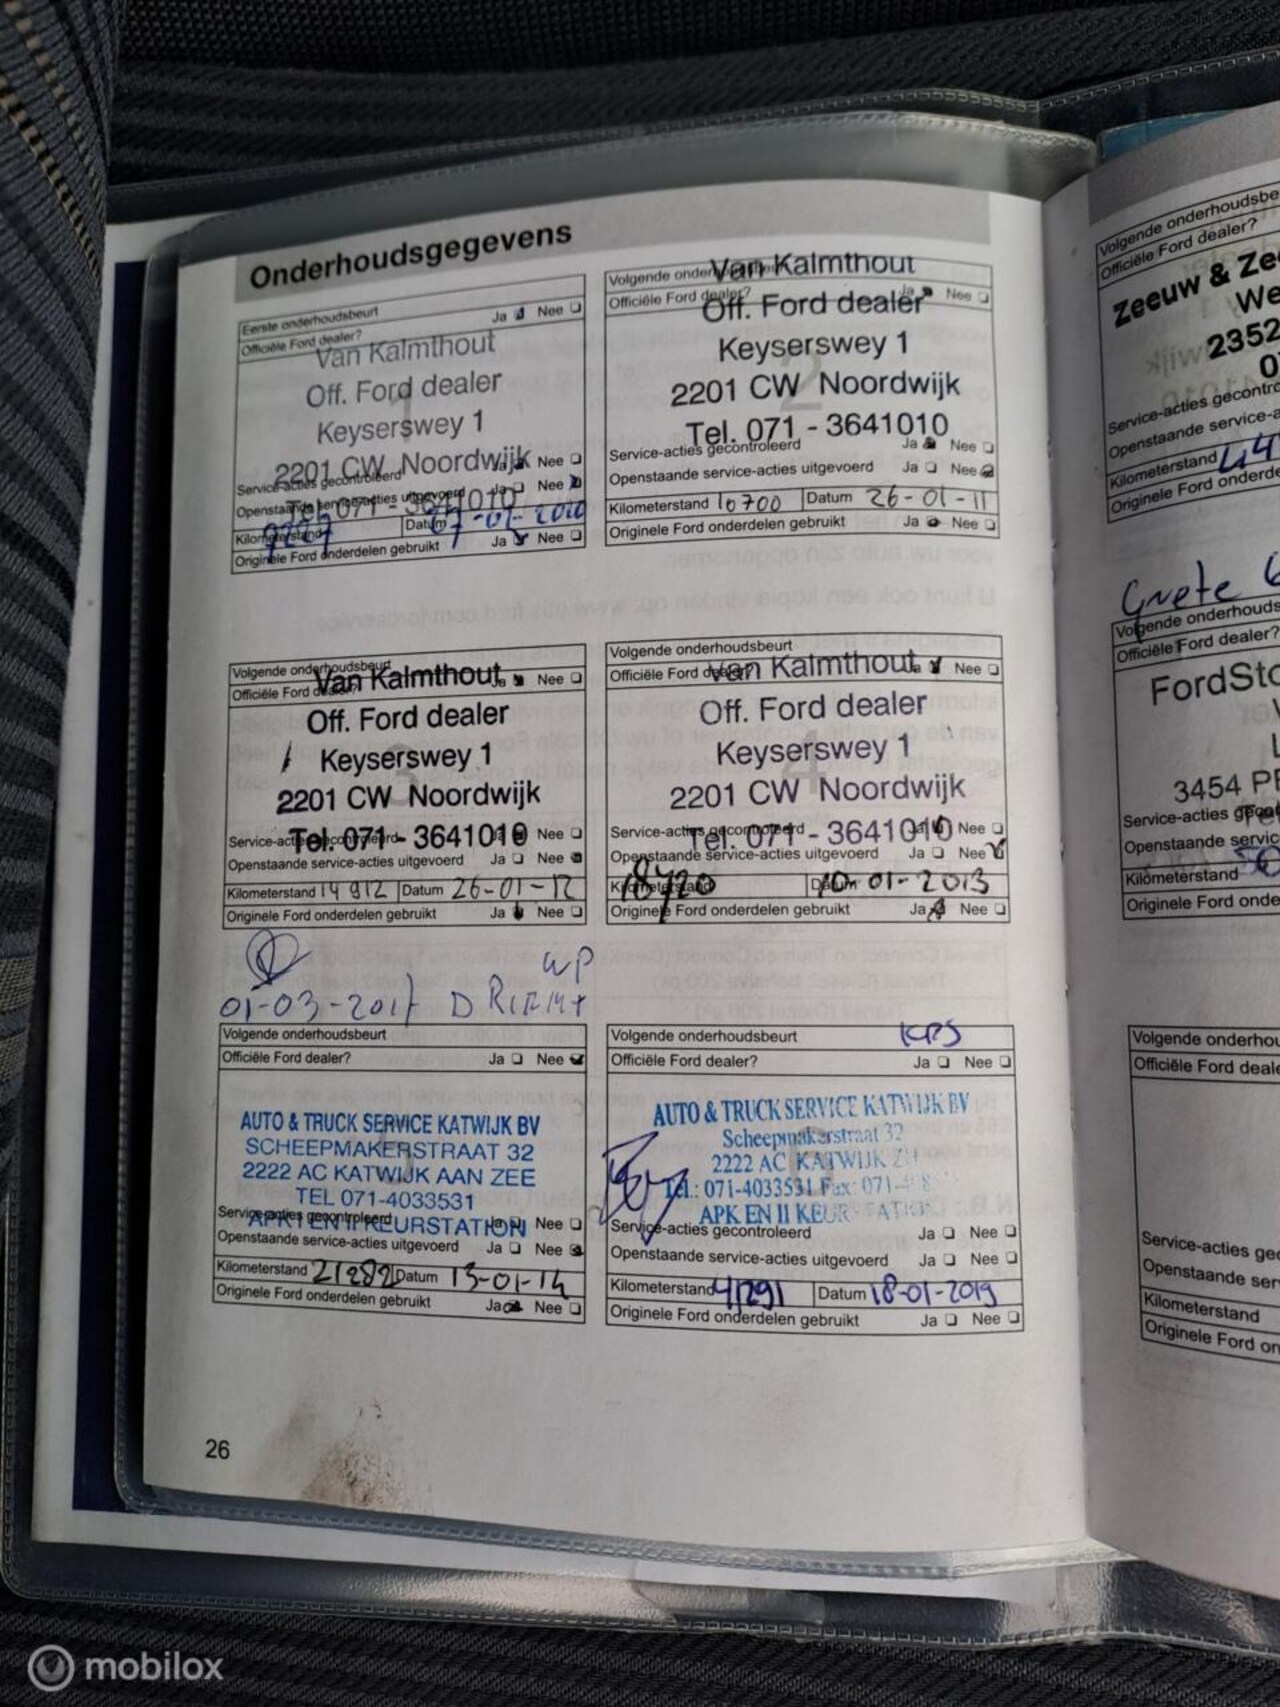 Onderhoudsgegevens
Eerste onderhoudsbeurt
Officiële Ford dealer? Ja Nee
Van Kalmthout
Off. Ford dealer
Keyserswey 1
2201 CW Noordwijk
Tel. 071 - 3641010
Service-acties gecontroleerd Ja Nee
Openstaande service-acties uitgevoerd Ja Nee
Kilometerstand Datum 07-01-2010
Originele Ford onderdelen gebruikt Ja Nee
Volgende onderhoudsbeurt
Officiële Ford dealer? Ja Nee
Van Kalmthout
Off. Ford dealer
Keyserswey 1
2201 CW Noordwijk
Tel. 071 - 3641010
2
Service-acties gecontroleerd Ja Nee
Openstaande service-acties uitgevoerd Ja Nee
Kilometerstand 10700 Datum 26-01-11
Originele Ford onderdelen gebruikt Ja Nee
Volgende onderhoudsbeurt
Officiële Ford dealer? Ja Nee
Van Kalmthout
Off. Ford dealer
Keyserswey 1
2201 CW Noordwijk
Tel. 071 - 3641010
3
Service-acties gecontroleerd Ja Nee
Openstaande service-acties uitgevoerd Ja Nee
Kilometerstand 14912 Datum 26-01-12
Originele Ford onderdelen gebruikt Ja Nee
Volgende onderhoudsbeurt
Officiële Ford dealer? Ja Nee
Van Kalmthout
Off. Ford dealer
Keyserswey 1
2201 CW Noordwijk
Tel. 071 - 3641010
4
Service-acties gecontroleerd Ja Nee
Openstaande service-acties uitgevoerd Ja Nee
Kilometerstand 18720 Datum 10-01-2013
Originele Ford onderdelen gebruikt Ja Nee
WP
01-03-2017 D
Volgende onderhoudsbeurt
Officiële Ford dealer? Ja Nee
AUTO & TRUCK SERVICE KATWIJK BV
SCHEEPMAKERSTRAAT 32
2222 AC KATWIJK AAN ZEE
TEL 071-4033531
APK I EN II KEURSTATION
Service-acties gecontroleerd Ja Nee
Openstaande service-acties uitgevoerd Ja Nee
Kilometerstand 21282 Datum 13-01-14
Originele Ford onderdelen gebruikt Ja Nee
Volgende onderhoudsbeurt
Officiële Ford dealer? Ja Nee
AUTO & TRUCK SERVICE KATWIJK BV
Scheepmakerstraat 32
2222 AC KATWIJK
Tel.: 071-4033531 Fax: 071-
APK EN II KEURSTATION
Service-acties gecontroleerd Ja Nee
Openstaande service-acties uitgevoerd Ja Nee
Kilometerstand 41291 Datum 18-01-2019
Originele Ford onderdelen gebruikt Ja Nee
26
Volgende onderhoudsbe
Officiële Ford dealer?
Zeeuw & Ze
We
2352
0
Service-acties gecontro
Openstaande service-a
Kilometerstand 44
Originele Ford onderde
Grote
Volgende onderhouds
Officiële Ford dealer?
FordSto
3454 PE
Service-acties gecon
Openstaande servic
Kilometerstand
Originele Ford onde
Volgende onderhou
Officiële Ford deale
Service-acties ge
Openstaande ser
Kilometerstand
Originele Ford on
mobilox